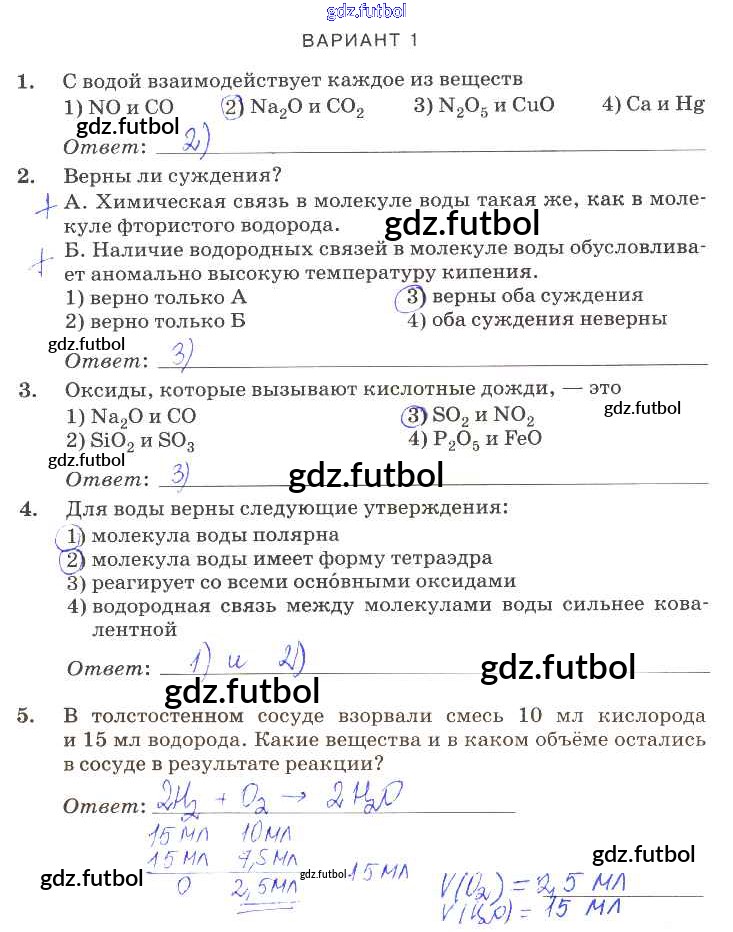 gdz.futbol
ВАРИАНТ 1
1. С водой взаимодействует каждое из веществ
1) NO и CO 2) Na₂O и CO₂ 3) N₂O₅ и CuO 4) Ca и Hg
gdz.futbol
Ответ: 2)
2. Верны ли суждения?
+ А. Химическая связь в молекуле воды такая же, как в моле-
куле фтористого водорода.
gdz.futbol
+ Б. Наличие водородных связей в молекуле воды обусловлива-
ет аномально высокую температуру кипения.
1) верно только А 3) верны оба суждения
2) верно только Б 4) оба суждения неверны
gdz.futbol
Ответ: 3)
3. Оксиды, которые вызывают кислотные дожди, — это
1) Na₂O и CO 3) SO₂ и NO₂
gdz.futbol
2) SiO₂ и SO₃ 4) P₂O₅ и FeO
gdz.futbol
Ответ: 3)
gdz.futbol
4. Для воды верны следующие утверждения:
1) молекула воды полярна
2) молекула воды имеет форму тетраэдра
3) реагирует со всеми оснóвными оксидами
4) водородная связь между молекулами воды сильнее кова-
лентной
Ответ: 1) и 2)
gdz.futbol
gdz.futbol
5. В толстостенном сосуде взорвали смесь 10 мл кислорода
и 15 мл водорода. Какие вещества и в каком объёме остались
в сосуде в результате реакции?
Ответ: 2H₂ + O₂ → 2H₂O
15 мл 10 мл
15 мл 7,5 мл
gdz.futbol
15 мл
0 2,5 мл
gdz.futbol
gdz.futbol
V(O₂) = 2,5 мл
V(H₂O) = 15 мл